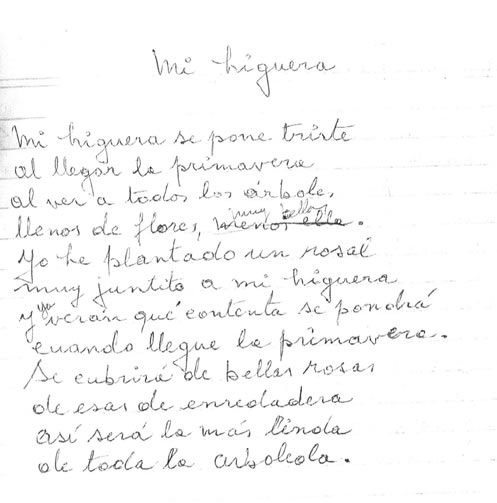 Mi higuera
Mi higuera se pone triste
al llegar la primavera
al ver a todos los árboles,
llenos de flores, menos ella muy bellas.
Yo he plantado un rosal
muy juntito a mi higuera
y ya verán qué contenta se pondrá
cuando llegue la primavera.
Se cubrirá de bellas rosas
de esas de enredadera
así será la más linda
de toda la arboleda.